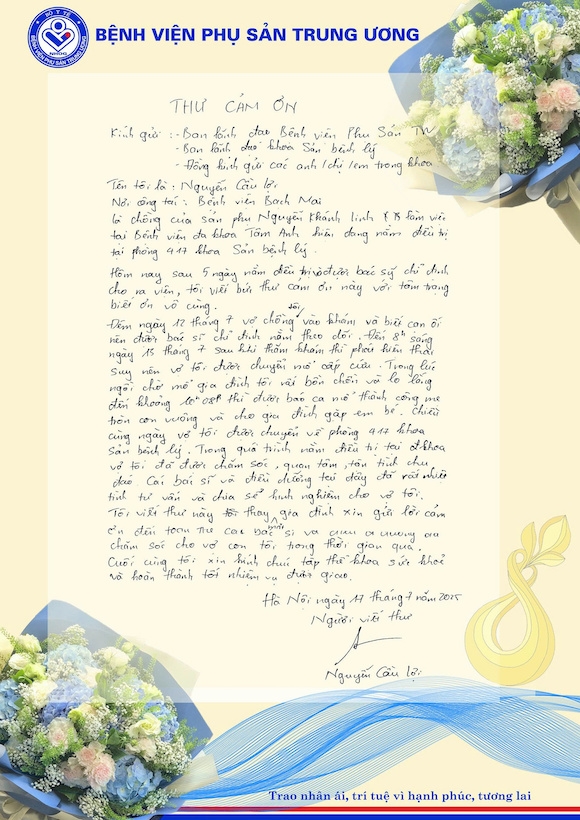 BỘ Y TẾ
BỆNH VIỆN PHỤ SẢN TRUNG ƯƠNG
BỆNH VIỆN PHỤ SẢN TRUNG ƯƠNG
THƯ CẢM ƠN
Kính gửi : - Ban lãnh đạo Bệnh viện Phụ Sản TW
- Ban lãnh đạo khoa Sản bệnh lý
- Đồng kính gửi các anh/chị/em trong khoa
Tên tôi là : Nguyễn Cầu Lợi
Nơi công tác : Bệnh viện Bạch Mai
là chồng của sản phụ Nguyễn Khánh Linh làm việc
tại Bệnh viện đa khoa Tâm Anh hiện đang nằm điều trị
tại phòng 417 khoa Sản bệnh lý .
Hôm nay sau 5 ngày nằm điều trị và được bác sỹ chỉ định
cho ra viện, tôi viết bức thư cảm ơn này với tâm trạng
biết ơn vô cùng.
Đêm ngày 12 tháng 7 vợ chồng tôi vào khám và biết con ối
nên được bác sĩ chỉ định nằm theo dõi . Đến 8h sáng
ngày 13 tháng 7 sau khi thăm khám thì phát hiện thai
suy nên vợ tôi được chuyển mổ cấp cứu . Trong lúc
ngồi chờ mổ gia đình tôi rất bồn chồn và lo lắng
đến khoảng 10h 08p thì được báo ca mổ thành công mẹ
tròn con vuông và cho gia đình gặp em bé. Chiều
cùng ngày vợ tôi được chuyển về phòng 417 khoa
Sản bệnh lý . Trong quá trình nằm điều trị tại khoa
vợ tôi đã được chăm sóc , quan tâm , tận tình chu
đáo Các bác sĩ và điều dưỡng tại đây đã rất nhiệt
tình tư vấn và chia sẻ kinh nghiệm cho vợ tôi.
Tôi viết thư này thay gia đình xin gửi lời cảm
ơn đến toàn thể các bác sĩ và
chăm sóc cho vợ con tôi trong thời gian qua .
Cuối cùng tôi xin kính chúc tập thể khoa sức khoẻ
và hoàn thành tốt nhiệm vụ được giao.
Hà Nội ngày 17 tháng 7 năm 2025
Người viết thư
Nguyễn Cầu Lợi
Trao nhân ái, trí tuệ vì hạnh phúc, tương lai